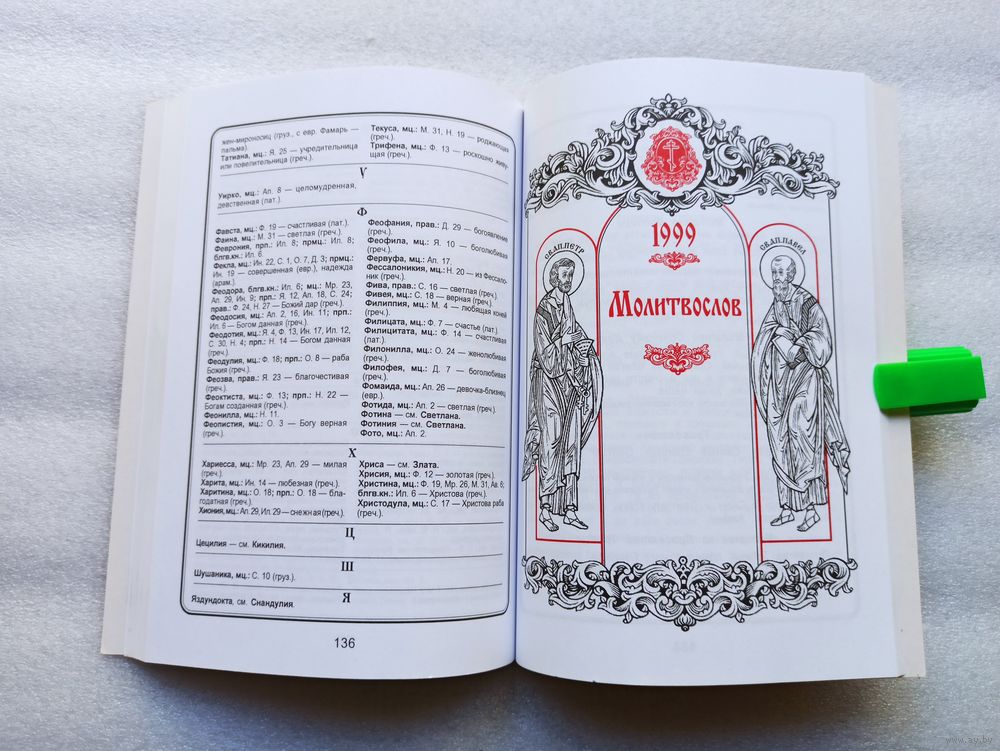 жен-мироносиц (груз., с евр. Фамарь —
пальма).
Татиана, мц.: Я. 25 — учредительница
или повелительница (греч.).
Текуса, мц.: М. 31, Н. 19 — рождающая
(греч.).
Трифена, мц.: Ф. 13 — роскошно живу-
щая (греч.).
V
Уирко, мц.: Ап. 8 — целомудренная,
девственная (лат.).
Ф
Фавста, мц.: Ф. 19 — счастливая (лат.).
Фаина, мц.: М. 31 — светлая (греч.).
Феврония, прп.: Ил. 8; прмц.: Ил. 8;
блгв.кн.: Ил. 6.
Фекла, мц.: Ин. 22, С. 1, О. 7, Д. 3; прмц.:
Ин. 19 — совершенная (евр.), надежда
(арам.).
Феодора, блгв.кн.: Ил. 6; мц.: Мр. 23,
Ап. 29, Ин. 9; прп.: Я. 12, Ап. 18, С. 24;
прав.: Ф. 24, Н. 27 — Божий дар (греч.).
Феодосия, мц.: Ап. 2, 16, Ин. 11; прп.:
Ил. 6 — Богом данная (греч.).
Феодотия, мц.: Я. 4, Ф. 13, Ин. 17, Ил. 12,
С. 30, Н. 4; прп.: Н. 14 — Богом данная
(греч.).
Феодулия, мц.: Ф. 18; прп.: О. 8 — раба
Божия (греч.).
Феозва, прав.: Я. 23 — благочестивая
(греч.).
Феоктиста, мц.: Ф. 13; прп.: Н. 22 —
Богам созданная (греч.).
Феонилла, мц.: Н. 11.
Феопистия, мц.: О. 3 — Богу верная
(греч.).
Феофания, прав.: Д. 29 — богоявление
(греч.).
Феофила, мц.: Я. 10 — боголюбивая
(греч.).
Фервуфа, мц.: Ап. 17.
Фессалоникия, мц.: Н. 20 — из Фессало-
ник (греч.).
Фива, прав.: С. 16 — светлая (греч.).
Фивея, мц.: С. 18 — верная (греч.).
Филиппия, мц.: М. 4 — любящая коней
(греч.).
Филицата, мц.: Ф. 7 — счастье (лат.).
Филицитата, мц.: Ф. 14 — счастливая
(лат.).
Филонилла, мц.: О. 24 — женолюбивая
(греч.).
Филофея, мц.: Д. 7 — боголюбивая
(греч.).
Фомаида, мц.: Ап. 26 — девочка-близнец
(евр.).
Фотида, мц.: Ап. 2 — светлая (греч.).
Фотина — см. Светлана.
Фотиния — см. Светлана.
Фото, мц.: Ап. 2.
Х
Хариесса, мц.: Мр. 23, Ап. 29 — милая
(греч.).
Харита, мц.: Ин. 14 — любезная (греч.).
Харитина, мц.: О. 18; прп.: О. 18 — бла-
годатная (греч.).
Хиония, мц.: Ап. 29, Ил. 29 — снежная (греч.).
Хриса — см. Злата.
Хрисия, мц.: Ф. 12 — золотая (греч.).
Христина, мц.: Ф. 19, Мр. 26, М. 31, Ав. 6;
блгв.кн.: Ил. 6 — Христова (греч.).
Христодула, мц.: С. 17 — Христова раба
(греч.).
Ц
Цецилия — см. Кикилия.
Ш
Шушаника, мц.: С. 10 (груз.).
Я
Яздундокта, см. Снандулия.
136
СВ.АП.ПЕТР
1999
СВ.АП.ПАВЕЛ
Молитвослов
www.ay.by